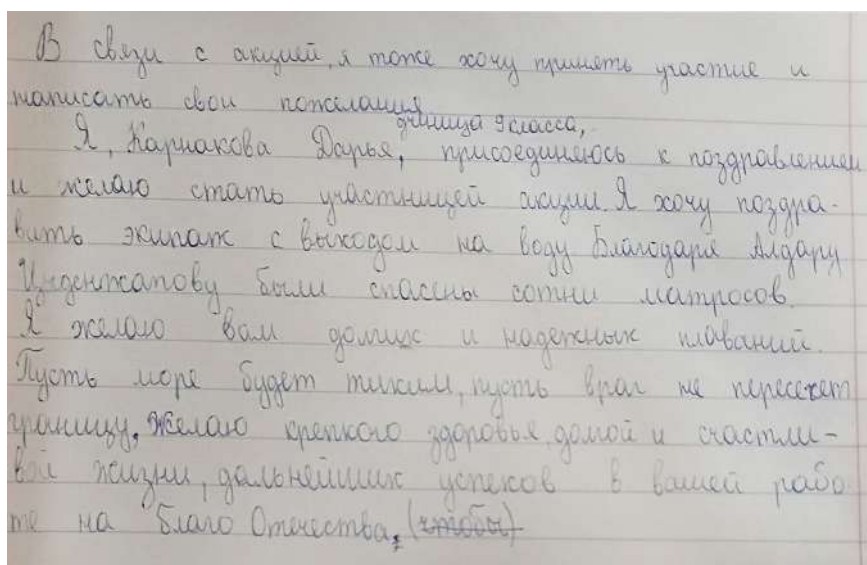 В связи с акцией, я тоже хочу принять участие и
написать свои пожелания.
ученица 9 класса,
Я, Карнакова Дарья, присоединяюсь к поздравлением
и желаю стать участницей акции. Я хочу поздра-
вить экипаж с выходом на воду Благодаря Алдару
Цыденжапову были спасены сотни матросов.
Я желаю вам долгих и надежных плаваний.
Пусть море будет тихим, пусть враг не пересечет
границу. Желаю крепкого здоровья, долгой и счастли-
вой жизни, дальнейших успехов в вашей рабо
те на благо Отечества. (чтобы)